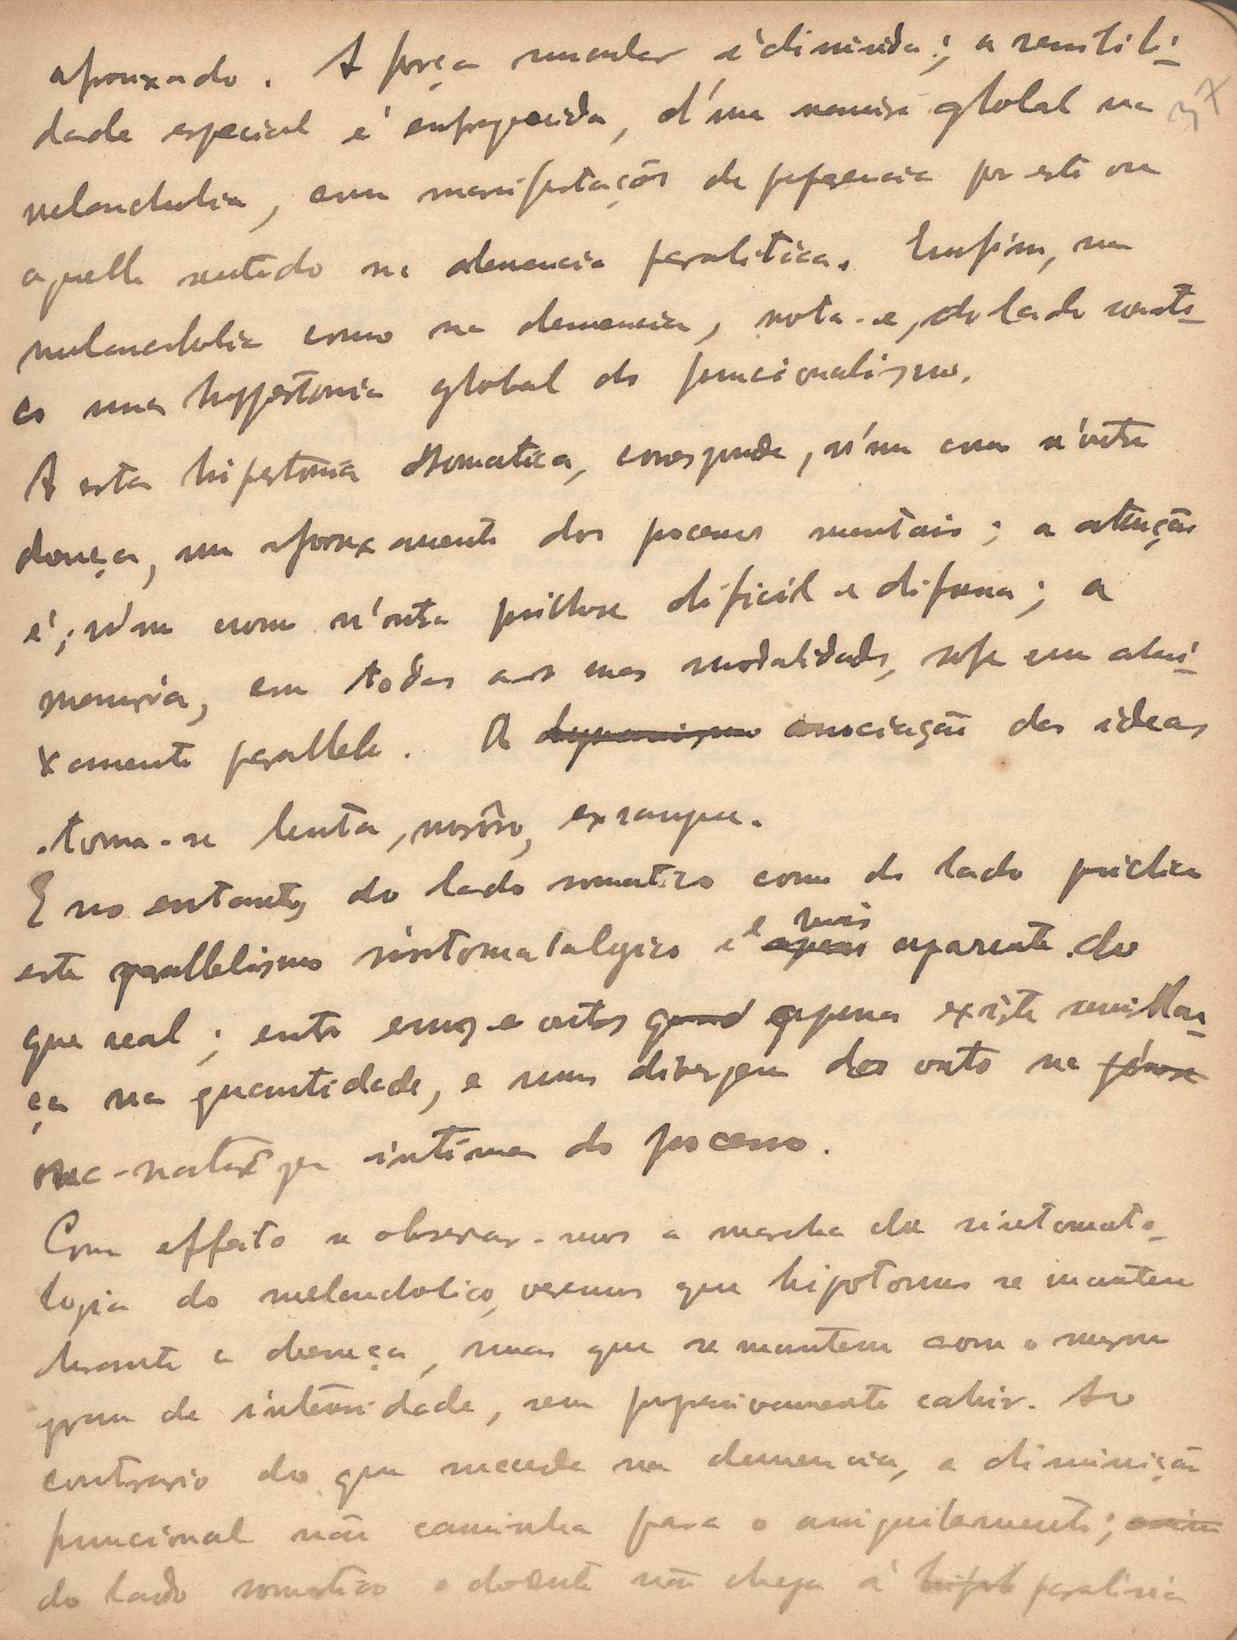 afrouxado. A força muscular é diminuida; a sensibili-
dade especial é enfraquecida, d'um modo global na
melancholia, sem manifestações de preferencia por este ou
aquelle sentido na demencia paralitica. Emfim, na
melancholia como na demencia, nota-se, do lado somati-
co uma hypotonia global do funcionalismo.
A esta hipotonia somatica, corresponde, n'uma como n'outra
doença, um afrouxamento dos processos mentais; a attenção
é, n'uma como n'outra psichose dificil e difusa; a
memoria, em todas as suas modalidades, sofre um abai-
xamento parallelo. A dynamismo associação das ideas
torna-se lenta, exsangue.
E no entanto, do lado somatico como do lado psichico
este parallelismo sintomatologico é apenas mais aparente do
que real; entre esses e outros apenas existe semilhan-
ça na quantidade, e uns divergem dos outros na força
natureza intima do processo.
Com effeito se observar-mos a marcha da sintomato-
logia do melancholico, veremos que hipotonus se mantem
durante a doença, mas que se mantem com o mesmo
grau de intensidade, sem progressivamente cahir. Ao
contrario do que succede na demencia, a diminuição
funcional não caminha para o aniquilamento; assim
do lado somatico o doente não chega á paralisia